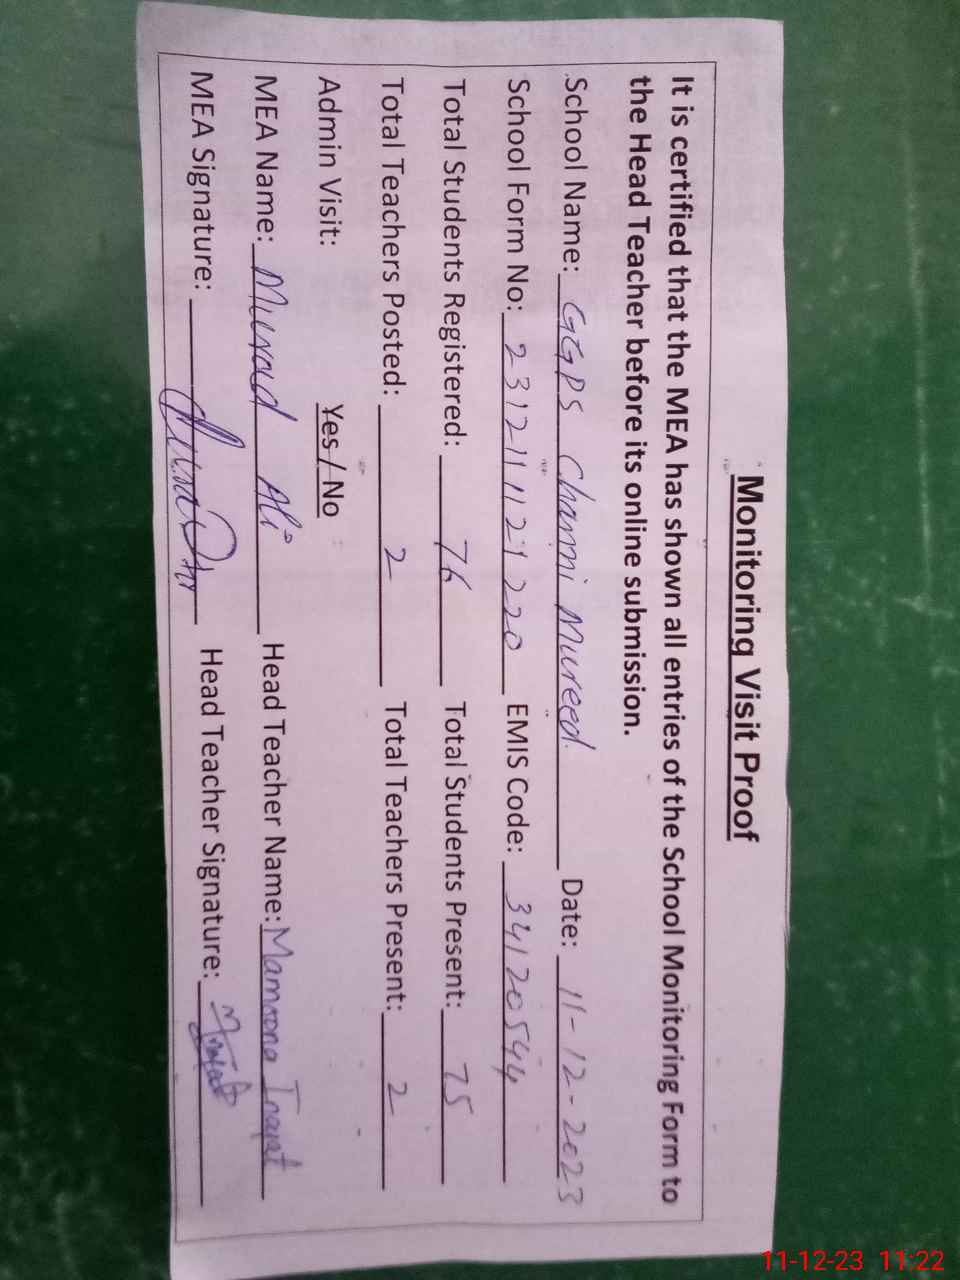 Monitoring Visit Proof
It is certified that the MEA has shown all entries of the School Monitoring Form to
the Head Teacher before its online submission.
School Name: GGPS Channi Mureed. Date: 11-12-2023
School Form No: 231211121220 EMIS Code: 34120544
Total Students Registered: 76 Total Students Present: 75
Total Teachers Posted: 2 Total Teachers Present: 2
Admin Visit: Yes / No
MEA Name: Murad Ali Head Teacher Name: Mamoona Inayat
MEA Signature: Head Teacher Signature:
11-12-23 11:22